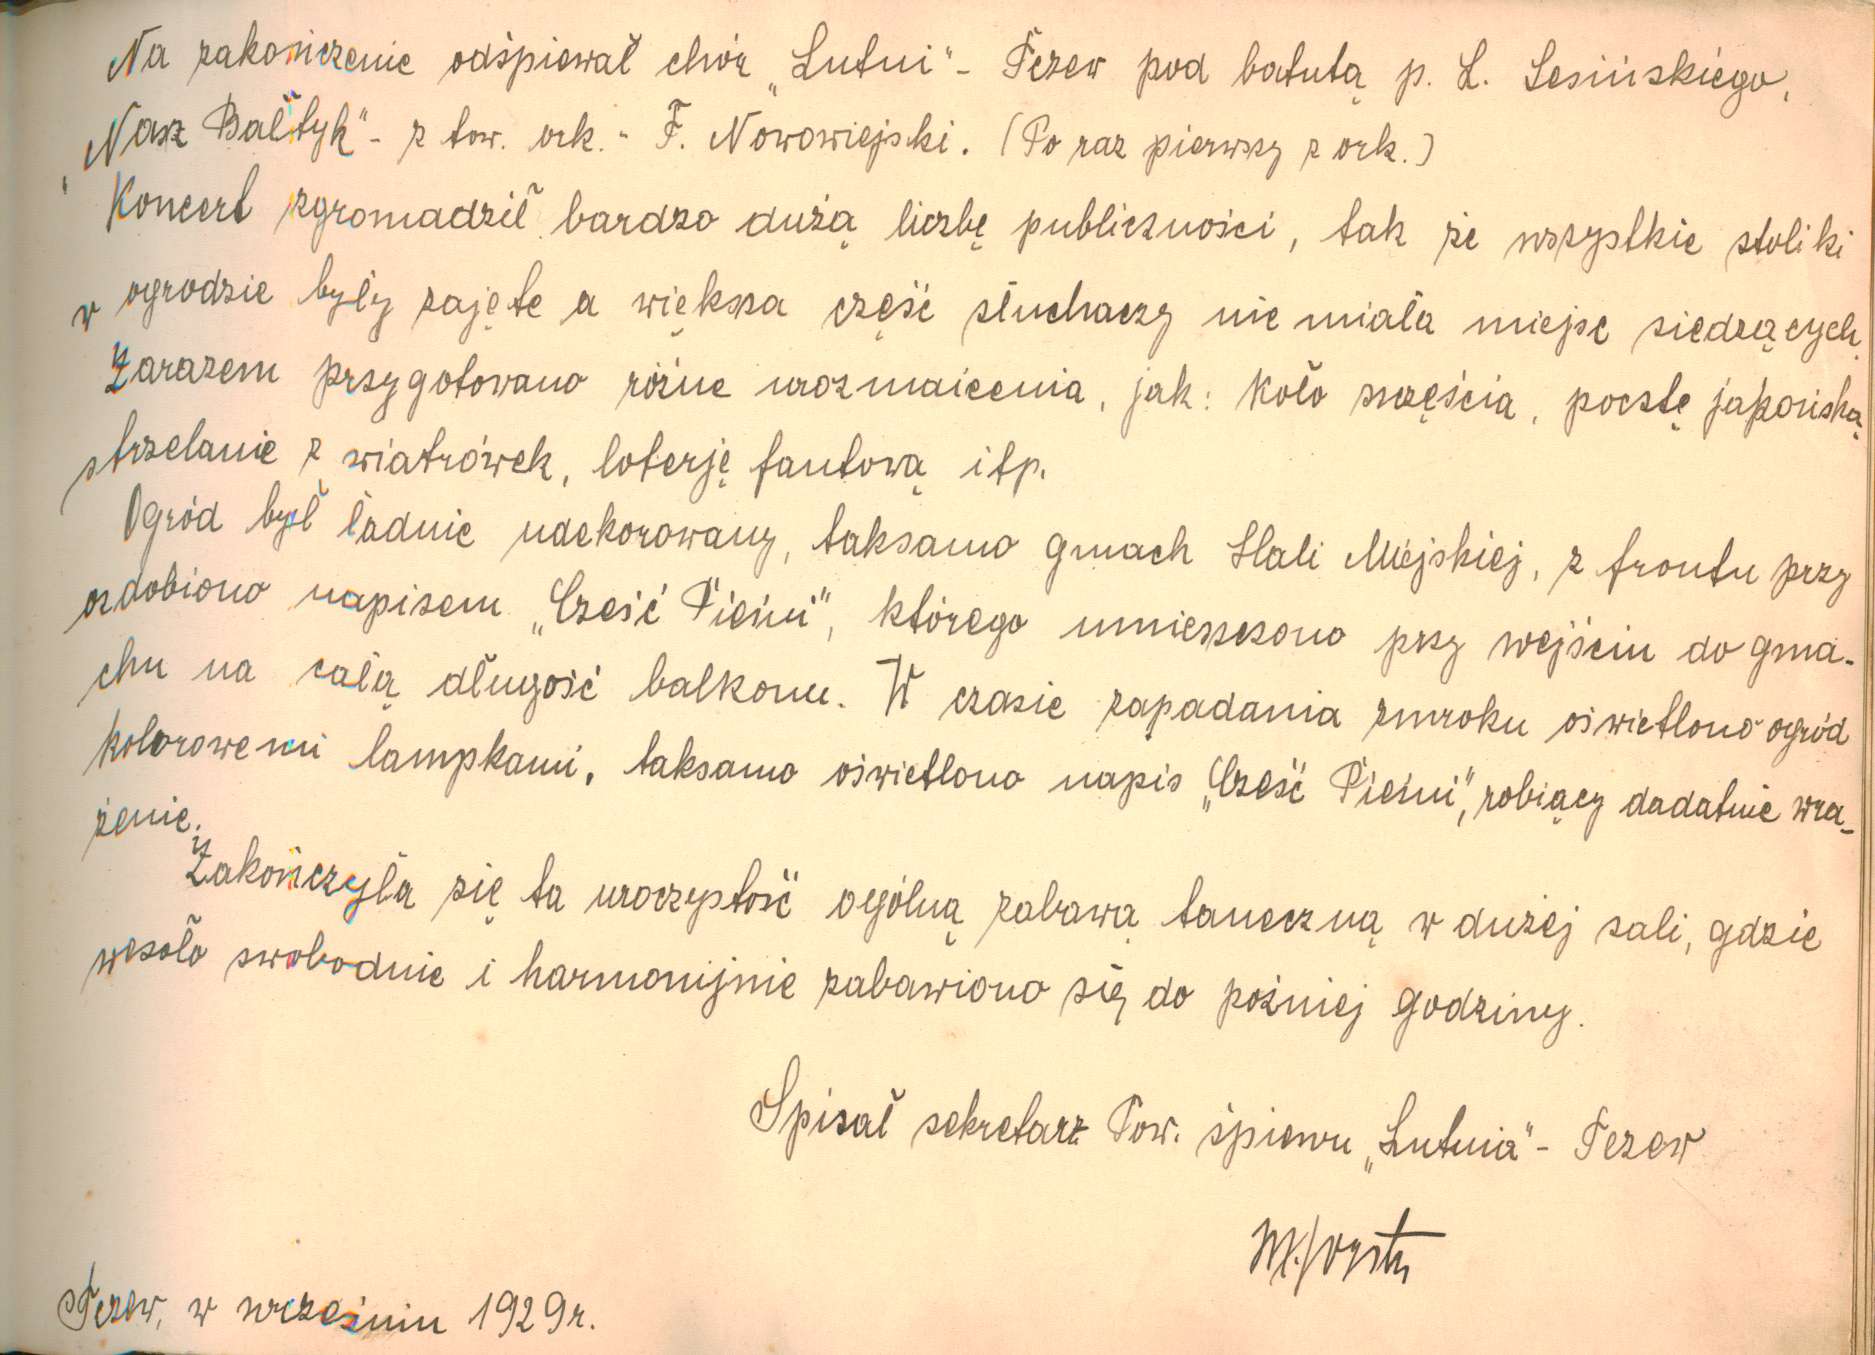 Na zakończenie odśpiewał chór „Lutni" - Tczew pod batutą p. L. Lesińskiego,
„Nasz Bałtyk" - z tow. ork. - F. Nowowiejski. (Po raz pierwszy z ork.)
Koncert zgromadził bardzo dużą liczbę publiczności, tak że wszystkie stoliki
w ogrodzie były zajęte a większa część słuchaczy nie miała miejsc siedzących.
Zarazem przygotowano różne urozmaicenia, jak: koło szczęścia, pocztę japońską
strzelanie z wiatrówek, loterję fantową itp.
Ogród był ładnie udekorowany, taksamo gmach Hali Miejskiej, z frontu przy
ozdobiono napisem „Cześć Pieśni", którego umieszczono przy wejściu do gma-
chu na całą długość balkonu. W czasie zapadania zmroku oświetlono ogród
kolorowemi lampkami, taksamo oświetlono napis „Cześć Pieśni", robiący dodatnie wra-
żenie.
Zakończyła się ta uroczystość ogólną zabawą taneczną w dużej sali, gdzie
wesoło swobodnie i harmonijnie zabawiono się do poźniej godziny.
Spisał sekretarz Tow. śpiewu „Lutnia" - Tczew
Tczew, w wrześniu 1929r.